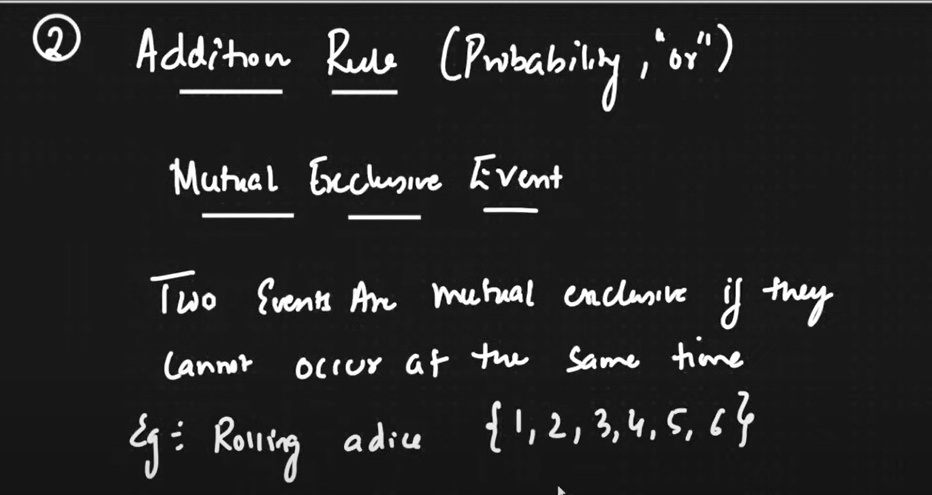 ② Addition Rule (Probability, "or")
Mutual Exclusive Event
Two Events Are mutual exclusive if they
cannot occur at the same time
Eg: Rolling a dice {1, 2, 3, 4, 5, 6}